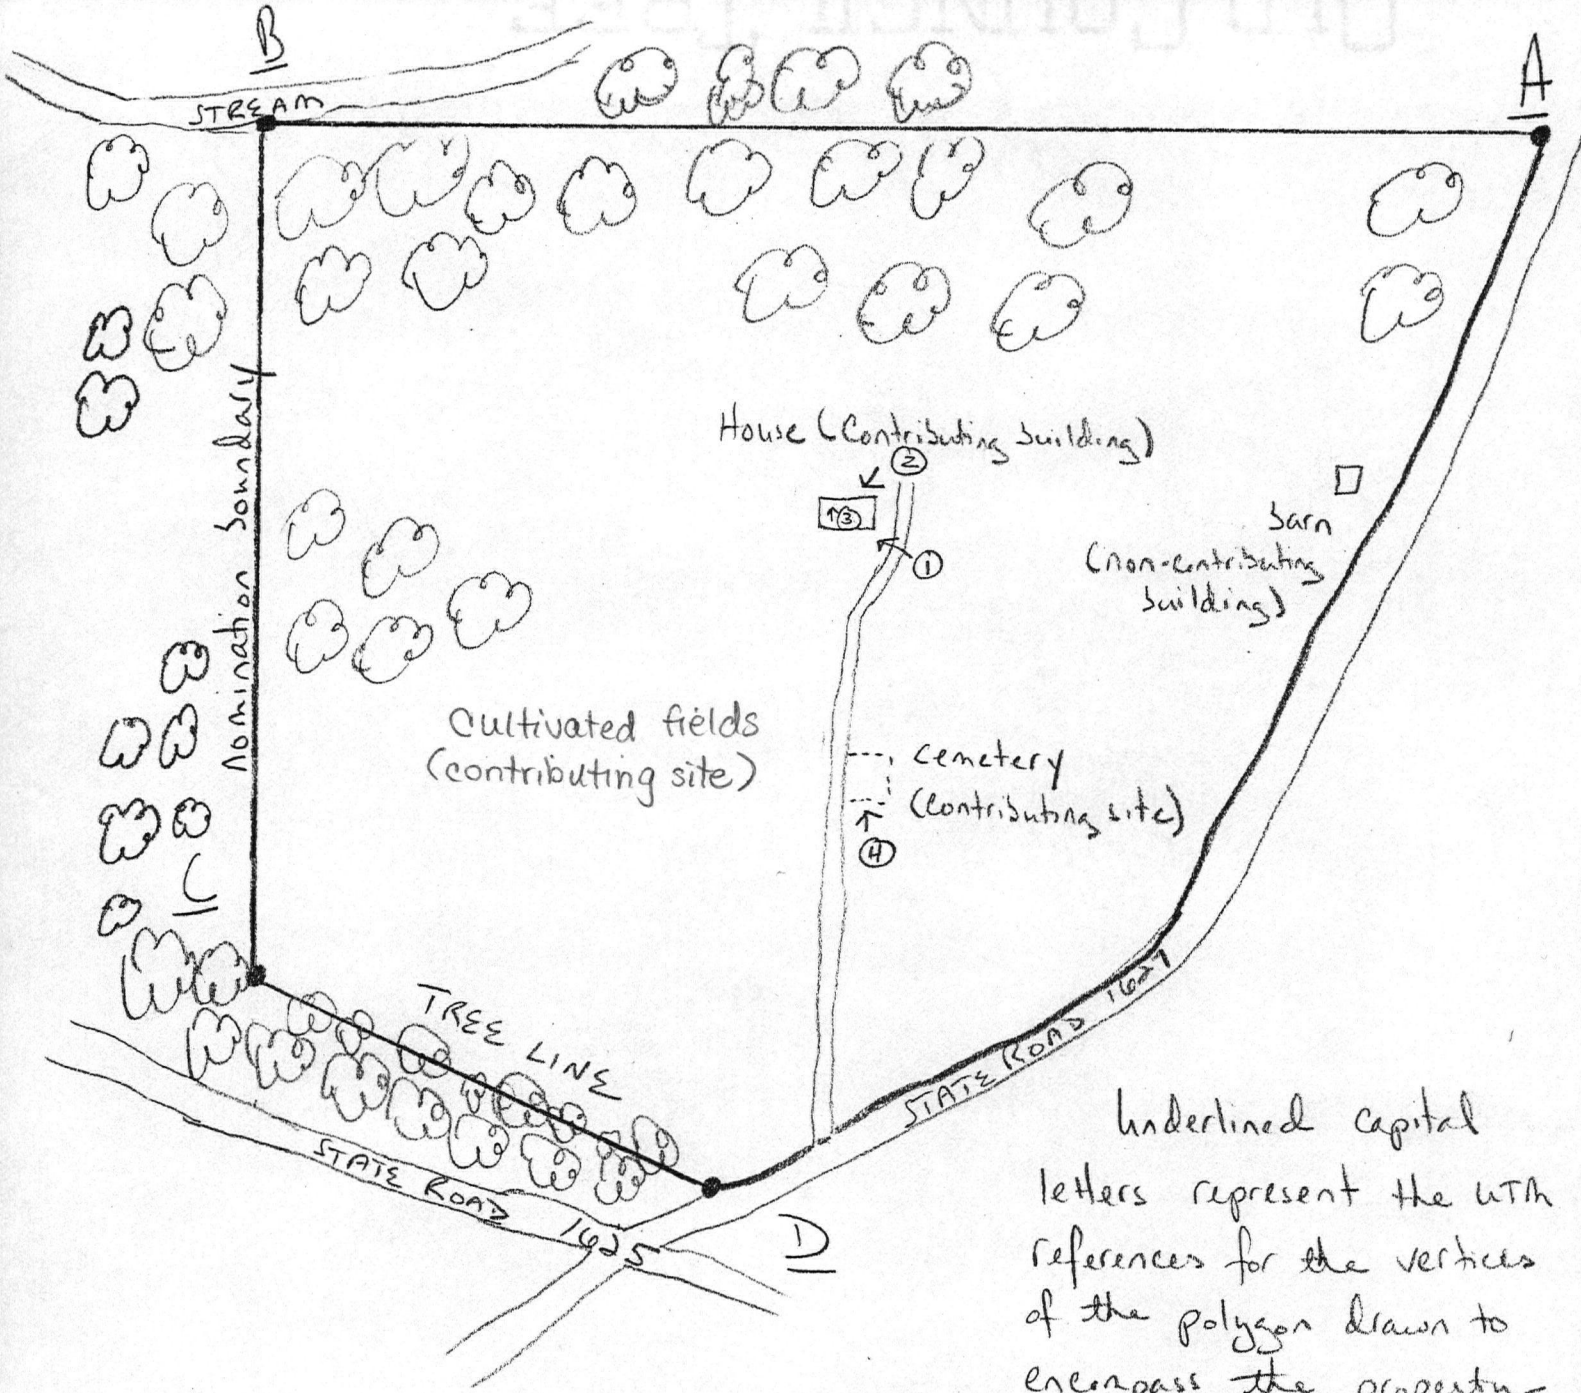 B
A
STREAM
nomination boundary
House (Contributing building)
2
↑3
1
barn
(non-contributing
building)
Cultivated fields
(contributing site)
cemetery
(contributing site)
4
C
TREE LINE
STATE ROAD 1627
STATE ROAD 1625
D
Underlined capital
letters represent the UTM
references for the vertices
of the polygon drawn to
encompass the property-